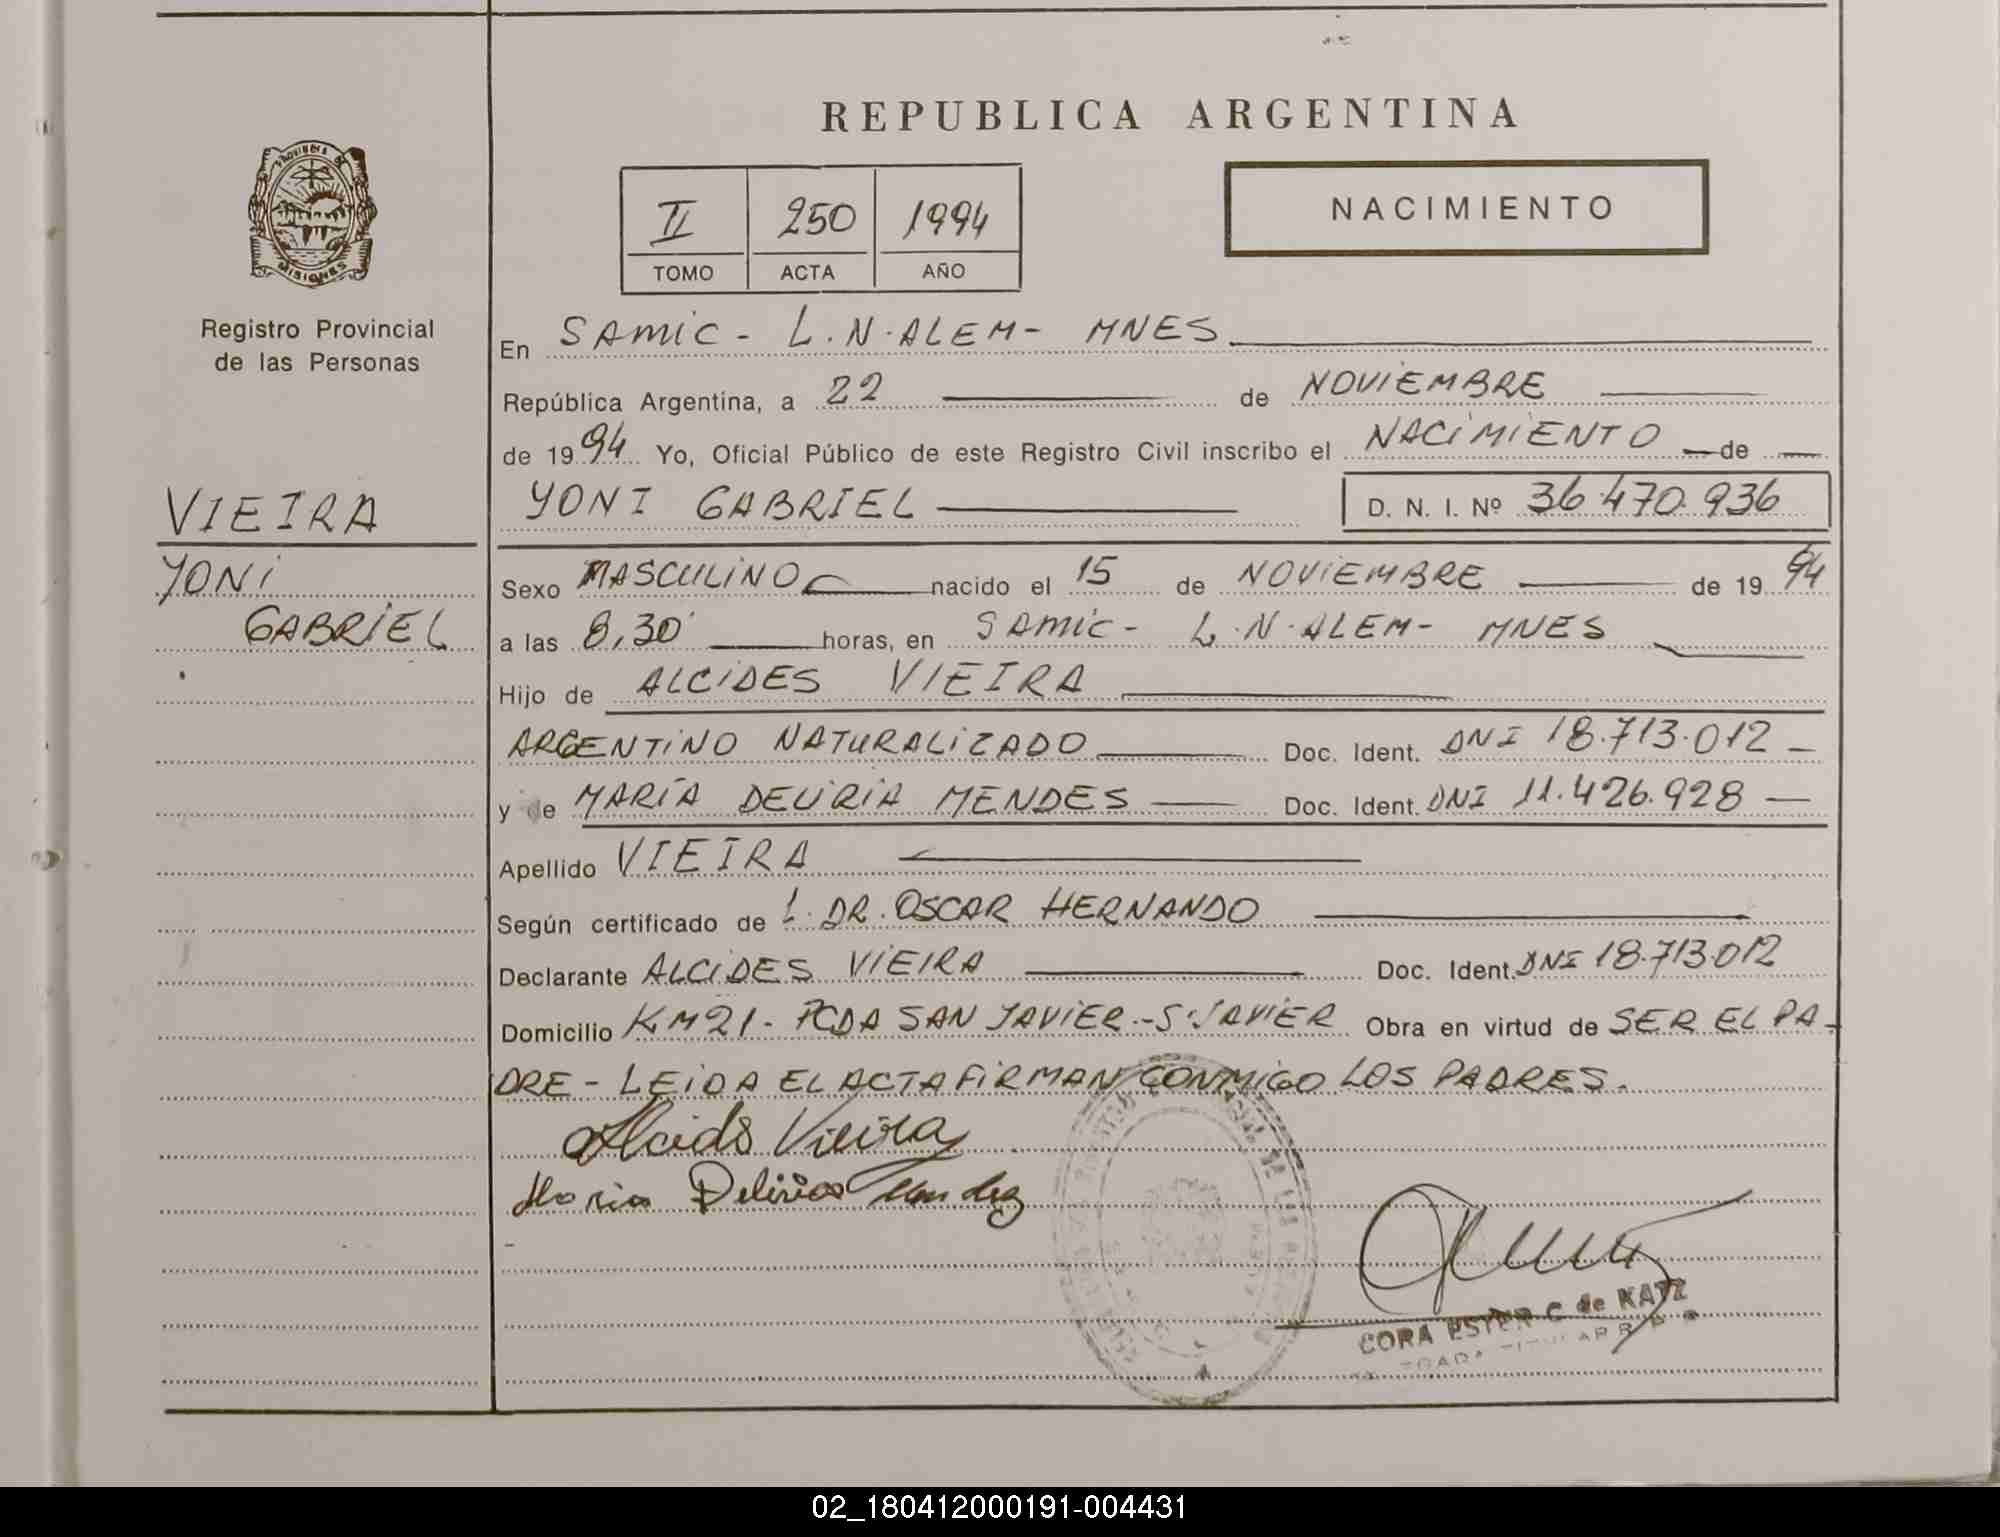 REPUBLICA ARGENTINA
PROVINCIA DE
MISIONES
Registro Provincial
de las Personas
II 250 1994
TOMO ACTA AÑO
NACIMIENTO
En SAMIC - L.N.ALEM - MNES
República Argentina, a 22 de NOVIEMBRE
de 1994 Yo, Oficial Público de este Registro Civil inscribo el NACIMIENTO de
VIEIRA
YONI
GABRIEL
YONI GABRIEL D. N. I. Nº 36.470.936
Sexo MASCULINO nacido el 15 de NOVIEMBRE de 1994
a las 8,30 horas, en SAMIC - L.N.ALEM - MNES
Hijo de ALCIDES VIEIRA
ARGENTINO NATURALIZADO Doc. Ident. DNI 18.713.012 -
y de MARÍA DELIRIA MENDES Doc. Ident. DNI 11.426.928 -
Apellido VIEIRA
Según certificado de DR. OSCAR HERNANDO
Declarante ALCIDES VIEIRA Doc. Ident. DNI 18.713.012
Domicilio KM 21 - PCDA SAN JAVIER.-S.JAVIER Obra en virtud de SER EL PA-
DRE - LEIDA EL ACTA FIRMAN CONMIGO LOS PADRES.
Alcides Vieira
Maria Deliria Mendes
CORA ESTER C de KATZ
02_180412000191-004431